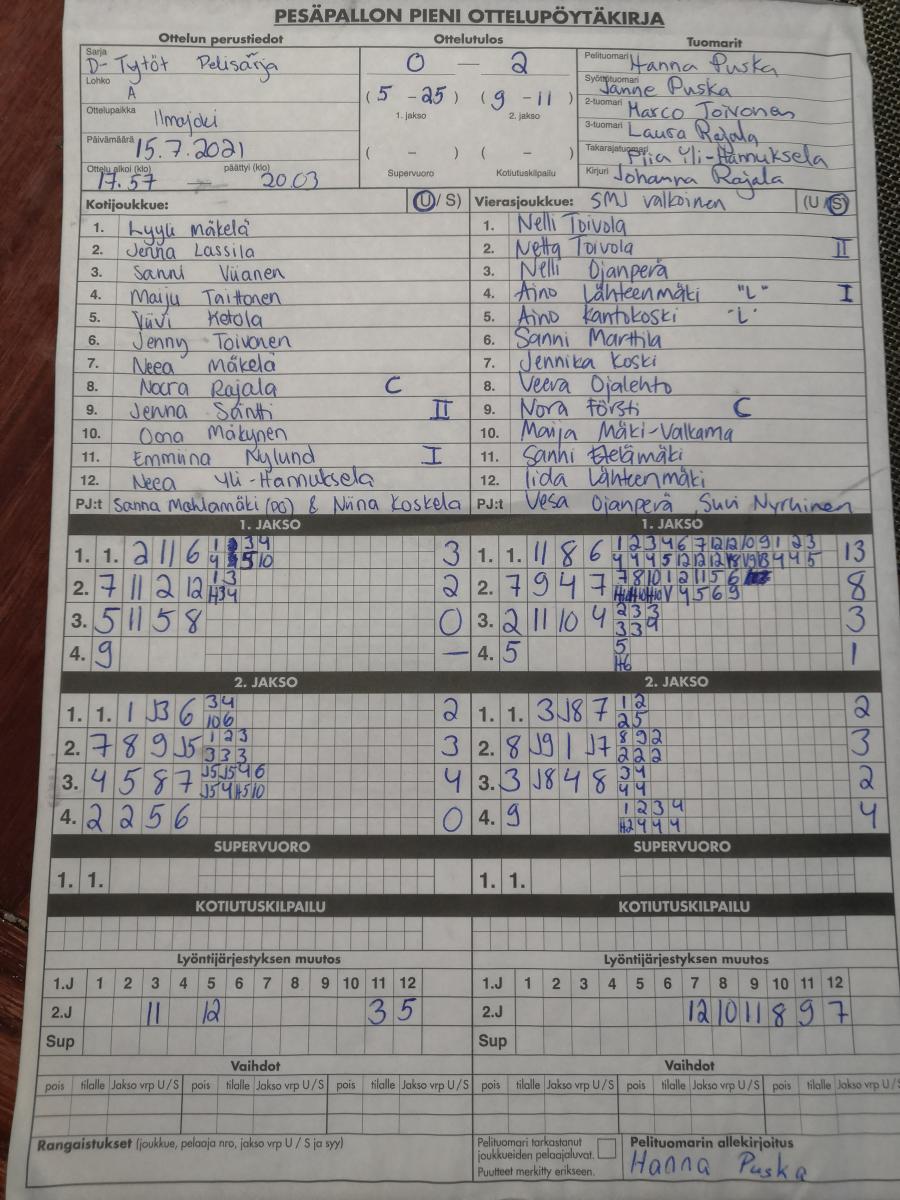 PESÄPALLON PIENI OTTELUPÖYTÄKIRJA
Ottelun perustiedot Ottelutulos Tuomarit
Sarja D- Tytöt Pelisarja
Lohko A
Ottelupaikka Ilmajoki
Päivämäärä 15.7.2021
Ottelu alkoi (klo) päättyi (klo)
17.57 — 20.03
0 — 2
( 5 - 25 ) ( 9 - 11 )
1. jakso 2. jakso
( - ) ( - )
Supervuoro Kotiutuskilpailu
Pelituomari Hanna Puska
Syöttötuomari Janne Puska
2-tuomari Marco Toivonen
3-tuomari Laura Rajala
Takarajatuomari Piia Yli-Hannuksela
Kirjuri Johanna Rajala
Kotijoukkue: (U/S)
1. Lyyli Mäkelä
2. Jenna Lassila
3. Sanni Viianen
4. Maiju Taittonen
5. Viivi Ketola
6. Jenny Toivonen
7. Neea Mäkelä
8. Noora Rajala C
9. Jenna Säntti II
10. Oona Mäkynen
11. Emmiina Nylund I
12. Neea Yli-Hannuksela
PJ:t Sanna Mahlamäki (oo) & Niina Koskela
Vierasjoukkue: SMJ valkoinen (U/S)
1. Nelli Toivola
2. Netta Toivola II
3. Nelli Ojanperä
4. Aino Lähteenmäki "L" I
5. Aino Kantokoski "L"
6. Sanni Marttila
7. Jennika Koski
8. Veera Ojalehto
9. Nora Försti C
10. Maija Mäki-Valkama
11. Sanni Etelämäki
12. Iida Lähteenmäki
PJ:t Vesa Ojanperä, Suvi Nyrhinen
1. JAKSO 1. JAKSO
1. 1. 2 11 6 3
2. 7 11 2 12 2
3. 5 11 5 8 0
4. 9 —
1. 1. 11 8 6 13
2. 7 9 4 7 8
3. 2 11 10 4 2 3 3 3
3 3 9
4. 5 5 1
H6
2. JAKSO 2. JAKSO
1. 1. 1 J3 6 3 4 2
10 6
2. 7 8 9 J5 1 2 3 3
3 3 3
3. 4 5 8 7 J5 J5 4 6 4
J5 4 H5 10
4. 2 2 5 6 0
1. 1. 3 J8 7 1 2 2
2 5
2. 8 J9 1 J7 8 9 2 3
2 2 2
3. 3 J8 4 8 3 4 2
4 4
4. 9 1 2 3 4 4
H2 4 4 4
SUPERVUORO SUPERVUORO
1. 1. 1. 1.
KOTIUTUSKILPAILU KOTIUTUSKILPAILU
Lyöntijärjestyksen muutos Lyöntijärjestyksen muutos
1.J 1 2 3 4 5 6 7 8 9 10 11 12
2.J 11 12 3 5
Sup
1.J 1 2 3 4 5 6 7 8 9 10 11 12
2.J 12 10 11 8 9 7
Sup
Vaihdot Vaihdot
pois tilalle Jakso vrp U/S pois tilalle Jakso vrp U/S pois tilalle Jakso vrp U/S
pois tilalle Jakso vrp U/S pois tilalle Jakso vrp U/S pois tilalle Jakso vrp U/S
Rangaistukset (joukkue, pelaaja nro, jakso vrp U / S ja syy)
Pelituomari tarkastanut
joukkueiden pelaajaluvat.
Puutteet merkitty erikseen.
Pelituomarin allekirjoitus
Hanna Puska